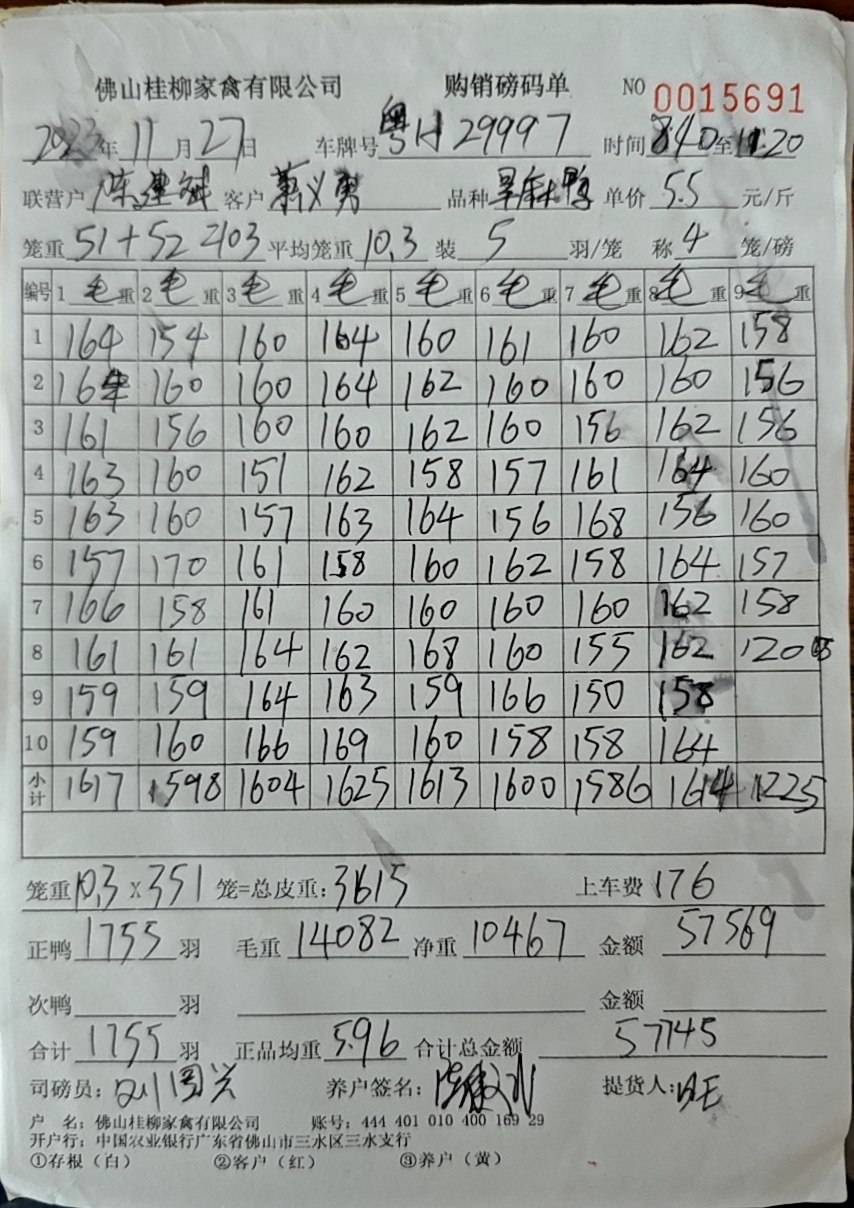 佛山桂柳家禽有限公司 购销磅码单 NO 0015691
2023年11月27日 车牌号 粤H29997 时间 840至11:20
联营户 陈建斌 客户 萧义勇 品种 旱麻鸭 单价 5.5 元/斤
笼重 51+52=103 平均笼重 10.3 装 5 羽/笼 称 4 笼/磅
编号 1 毛重 2 毛重 3 毛重 4 毛重 5 毛重 6 毛重 7 毛重 8 毛重 9 毛重
1 164 154 160 164 160 161 160 162 158
2 164 160 160 164 162 160 160 160 156
3 161 156 160 160 162 160 156 162 156
4 163 160 151 162 158 157 161 164 160
5 163 160 157 163 164 156 168 156 160
6 157 170 161 158 160 162 158 164 157
7 166 158 161 160 160 160 160 162 158
8 161 161 164 162 168 160 155 162 120
9 159 159 164 163 159 166 150 158
10 159 160 166 169 160 158 158 164
小计 1617 1598 1604 1625 1613 1600 1586 1614 1225
笼重 10.3 X 351 笼=总皮重: 3615 上车费 176
正鸭 1755 羽 毛重 14082 净重 10467 金额 57569
次鸭 羽 金额
合计 1755 羽 正品均重 5.96 合计总金额 57745
司磅员: 养户签名: 提货人:
户 名: 佛山桂柳家禽有限公司 账号: 444 401 010 400 169 29
开户行: 中国农业银行广东省佛山市三水区三水支行
①存根（白） ②客户（红） ③养户（黄）